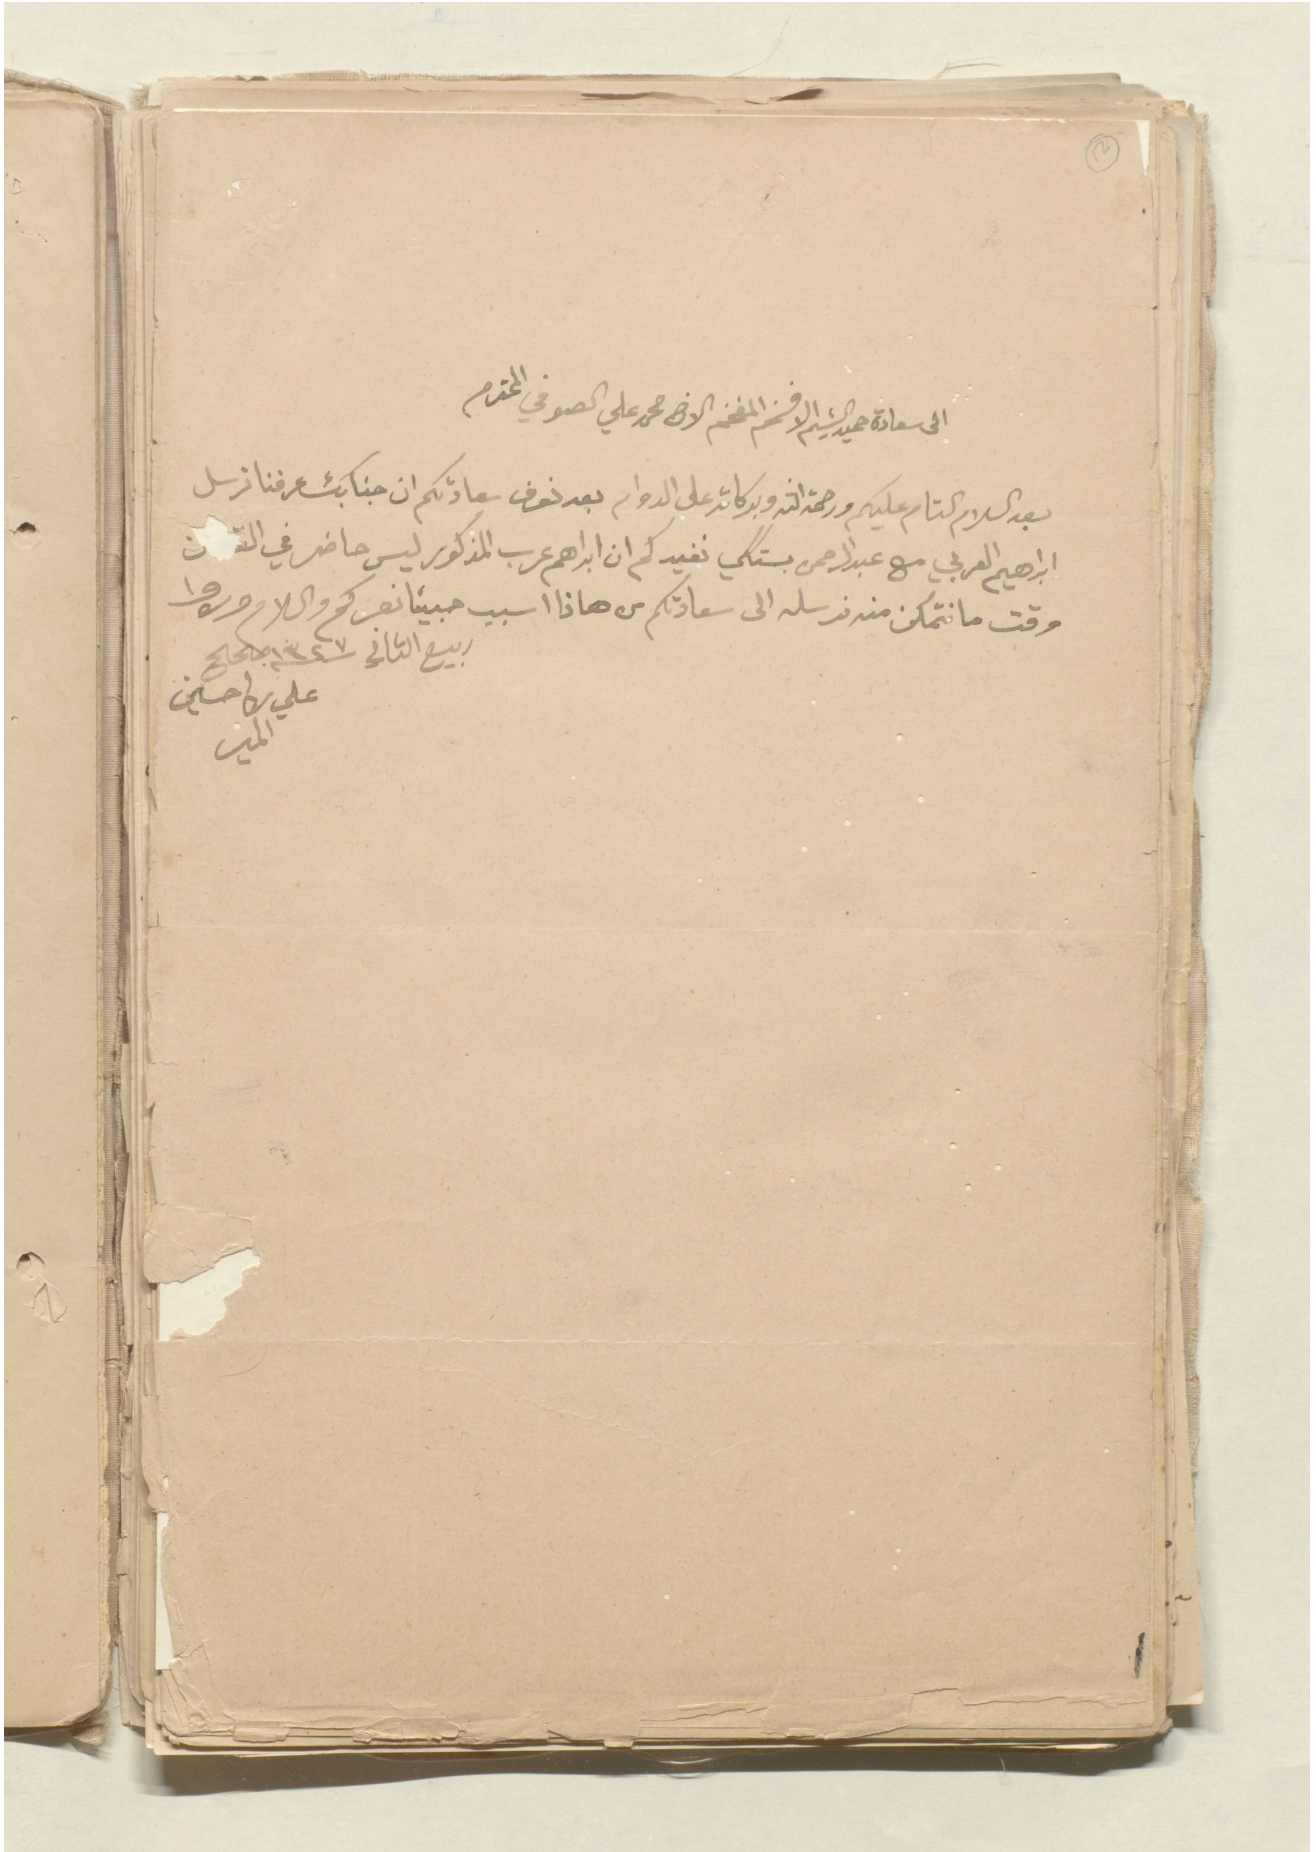 ١٢
الى سعادة حميد الشيم الافخم المفخم الاخ محمد علي الصوفي المحترم
بعد السلام التام عليكم ورحمة الله وبركاته على الدوام بعد نعرف سعادتكم ان جنابك عرفنا نرسل
ابراهيم العربي مع عبدالرحمن بستكي نفيدكم ان ابراهيم عرب المذكور ليس حاضر في
وقت ما نتمكن منه نرسله الى سعادتكم من هاذا اسبب حبينا نعرفكم والسلام
ربيع الثاني ١٣٤٧
علي حسين